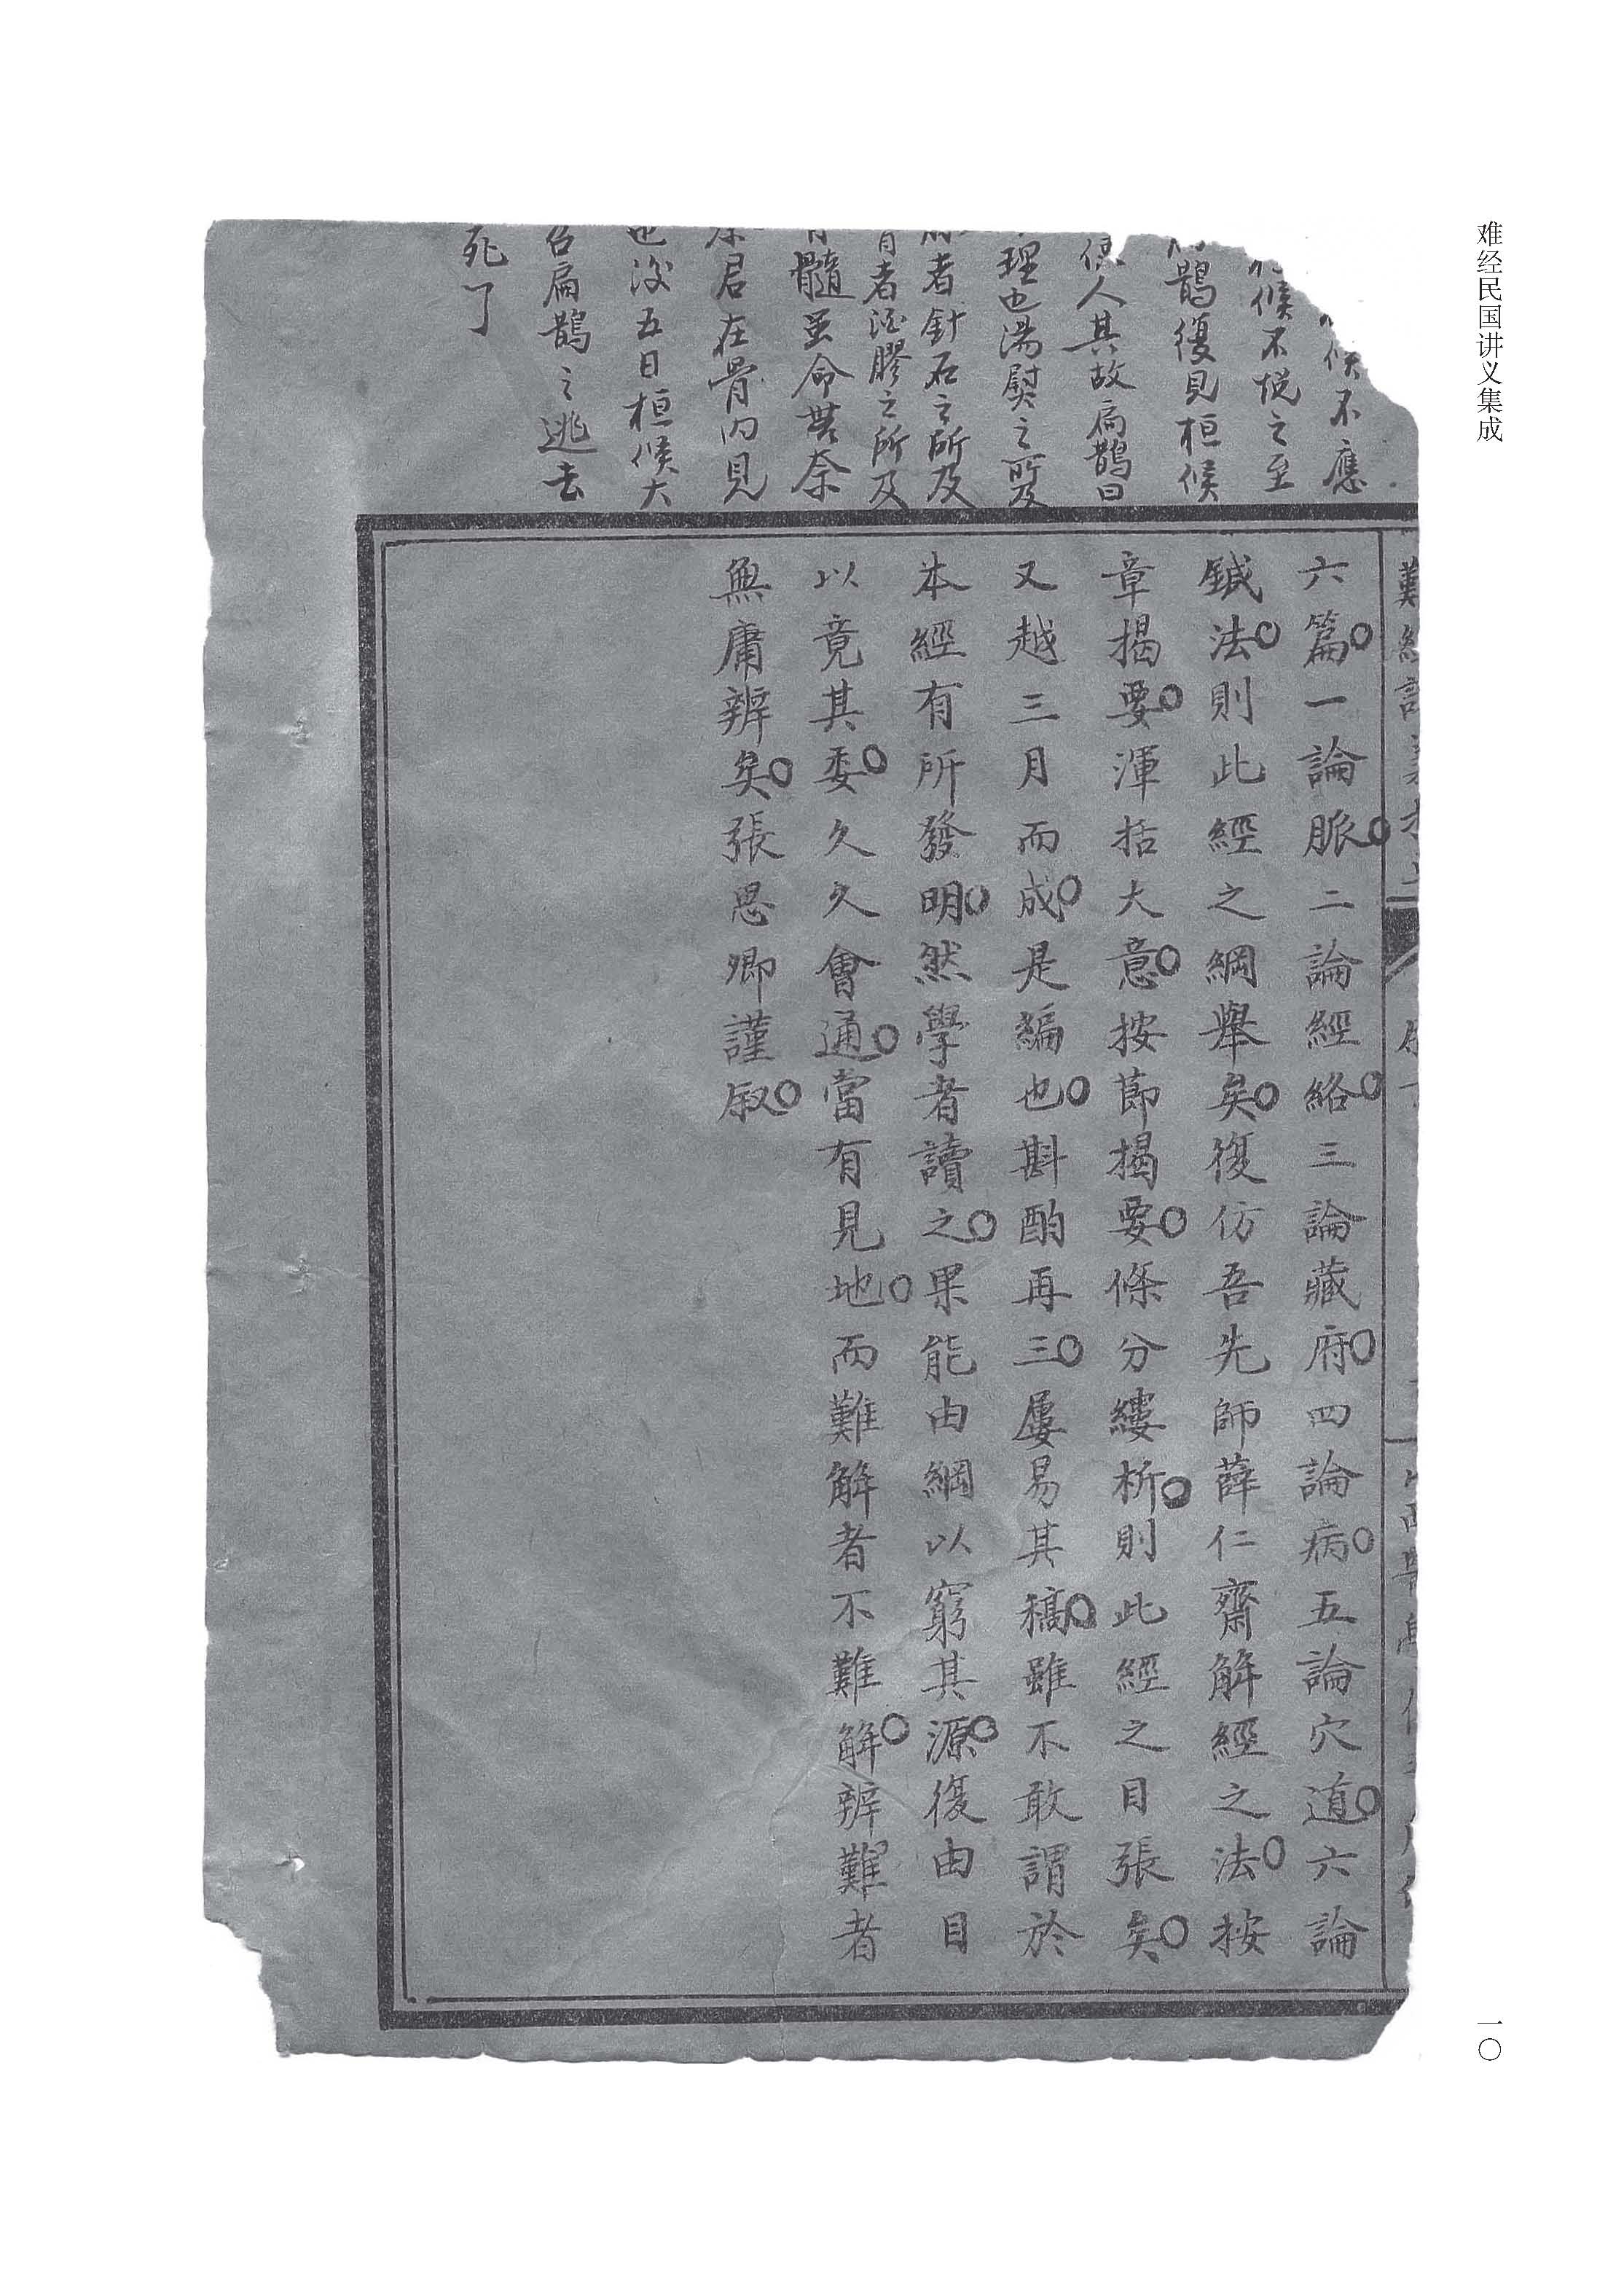 难经民国讲义集成
候不應
候不悦之至
鵲復見桓候
使人其故扁鵲曰
理也湯熨之所及
者針石之所及
者酒膠之所及
髓虽命無奈
君在骨内見
後五日桓候大
召扁鵲之逃去
死了
六篇一論脈二論經絡三論藏府四論病五論穴道六論
鍼法則此經之綱舉矣復仿吾先師薛仁齋解經之法按
章揭要渾括大意按節揭要條分縷析則此經之目張矣
又越三月而成是編也斟酌再三屢易其稿雖不敢謂於
本經有所發明然學者讀之果能由綱以窮其源復由目
以竟其委久久會通當有見地而難解者不難解辨難者
無庸辨矣張思卿謹叙
一〇